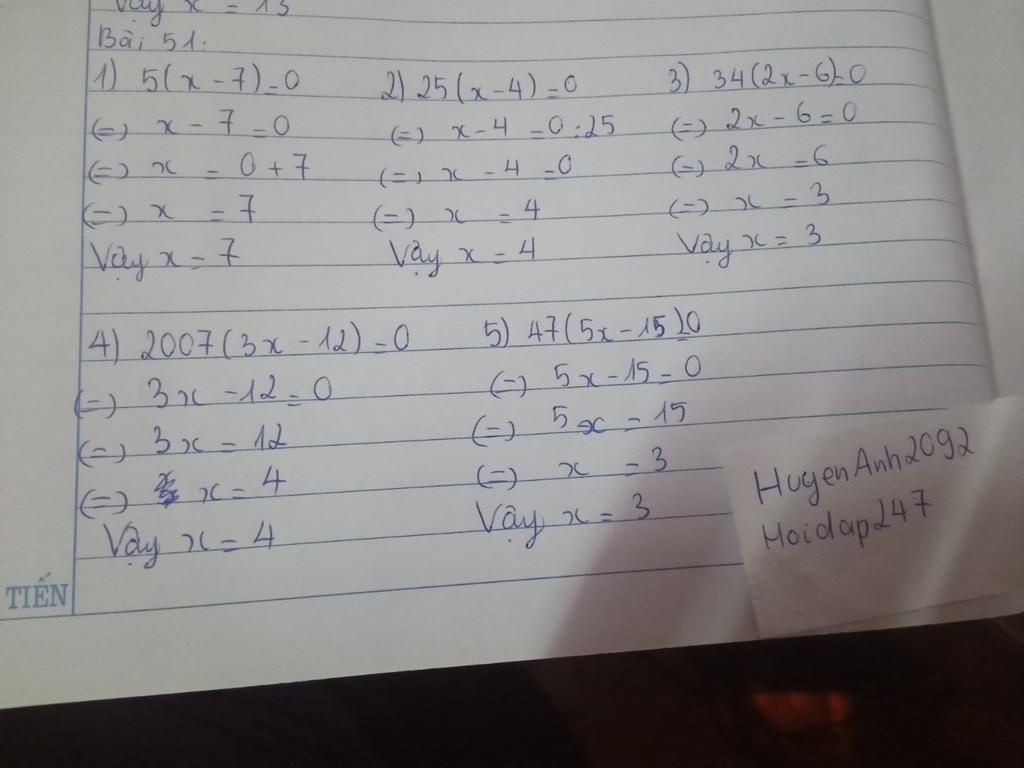 Vậy x = 13
Bài 51.
1) 5(x - 7) = 0
(=) x - 7 = 0
(=) x = 0 + 7
(=) x = 7
Vậy x = 7
2) 25(x - 4) = 0
(=) x - 4 = 0 : 25
(=) x - 4 = 0
(=) x = 4
Vậy x = 4
3) 34(2x - 6) = 0
(=) 2x - 6 = 0
(=) 2x = 6
(=) x = 3
Vậy x = 3
4) 2007(3x - 12) = 0
(=) 3x - 12 = 0
(=) 3x = 12
(=) x = 4
Vậy x = 4
5) 47(5x - 15) = 0
(=) 5x - 15 = 0
(=) 5x = 15
(=) x = 3
Vậy x = 3
HuyenAnh2092
Hoidap247
TIẾN